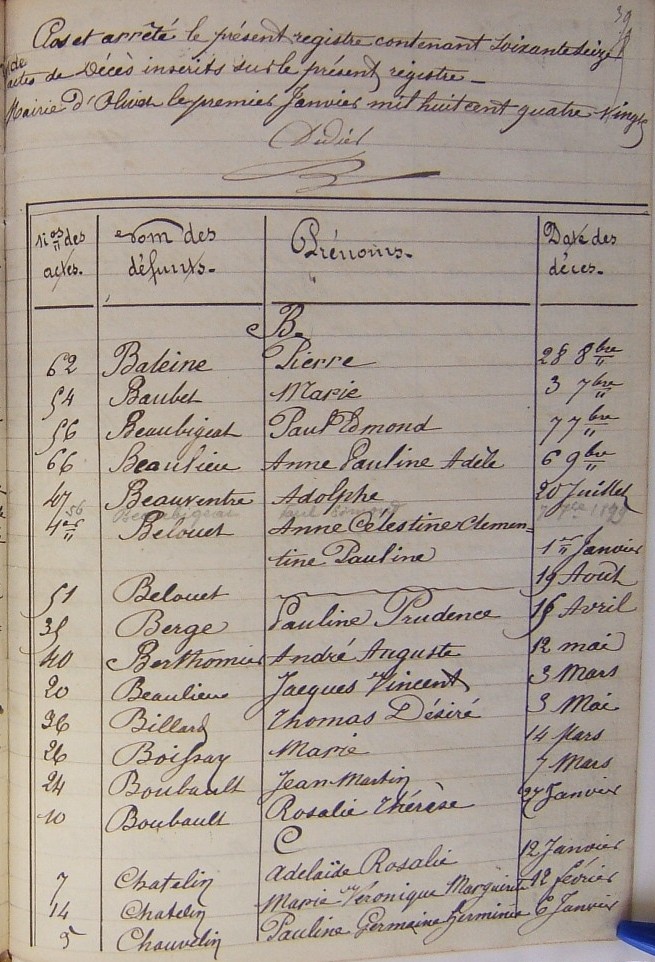 Clos et arrêté le présent registre contenant Soixante Seize
actes de Décès inscrits sur le présent registre _
Mairie d'Olivet le premier Janvier mil huit cent quatre Vingt
Didier
Nos des actes. Nom des défunts. Prénoms. Date des décès.
B
62 Baleine Pierre 28 8bre
54 Baubet Marie 3 7bre
56 Beaubigeat Paul Edmond 7 7bre
66 Beaulieu Anne Pauline Adèle 6 9bre
47 Beauventre Adolphe 20 Juillet
56 Beaubigeat Paul Edmond
Belouet Anne Célestine Clemen-
tine Pauline 1er Janvier
51 Belouet 19 Août
35 Berge Pauline Prudence Avril
40 Berthomier André Auguste 12 mai
20 Beaulieu Jacques Vincent 3 Mars
36 Billard Thomas Désiré 3 Mai
26 Boissay Marie 14 Mars
24 Boubault Jean Martin 7 Mars
10 Boubault Rosalie Thérèse 27 Janvier
C
7 Chatelin Adelaïde Rosalie 12 Janvier
14 Chatelin Marie Véronique Marguerite 12 février
5 Chauvelin Pauline Germaine herminie 6 Janvier